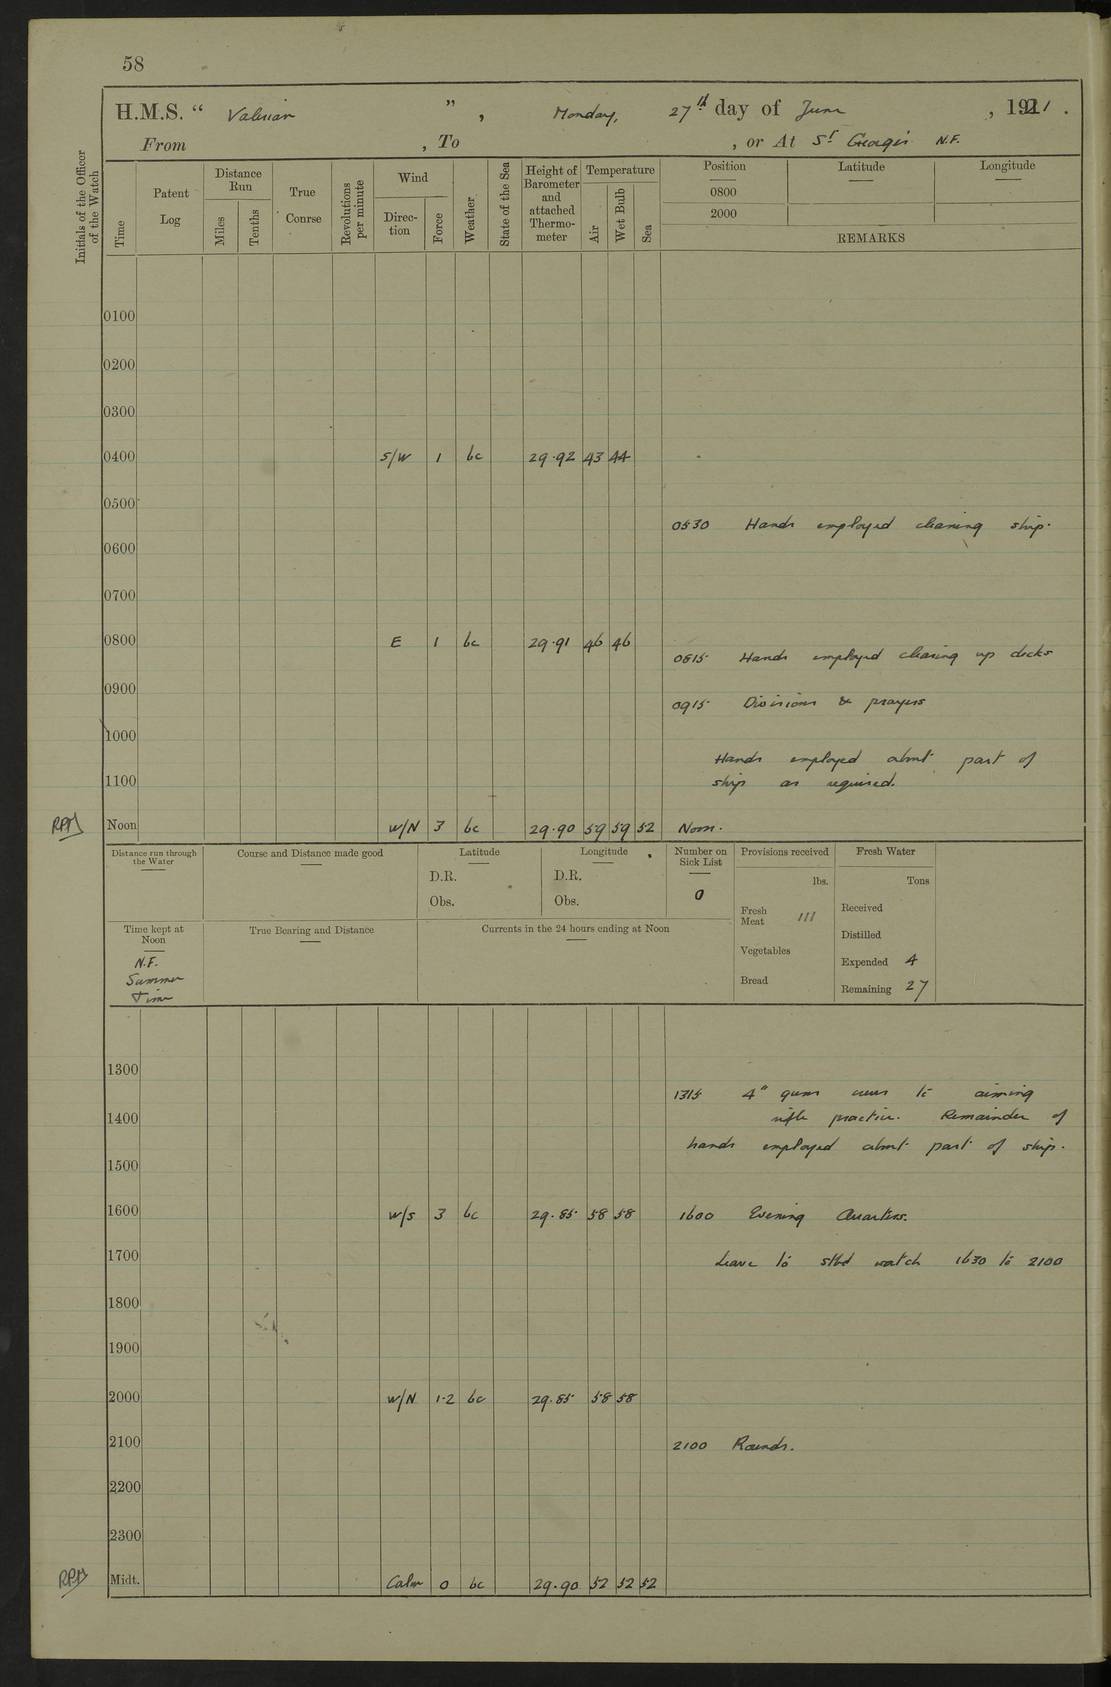 58
H.M.S. “ Valerian ” , Monday, 27th day of June , 1921 .
From , To , or At St Georges N.F.
Initials of the Officer of the Watch
Time
Patent Log
Distance Run
Miles
Tenths
True Course
Revolutions per minute
Wind
Direction
Force
Weather
State of the Sea
Height of Barometer and attached Thermometer
Temperature
Air
Wet Bulb
Sea
Position Latitude Longitude
0800
2000
REMARKS
0100
0200
0300
0400 S/W 1 bc 29.92 43 44
0500
0530 Hands employed cleaning ship.
0600
0700
0800 E 1 bc 29.91 46 46
0815 Hands employed clearing up decks
0900
0915 Divisions & prayers
1000
Hands employed about part of
1100 ship as required.
RPM Noon W/N 3 bc 29.90 59 59 52 Noon.
Distance run through the Water
Course and Distance made good
Latitude
D.R.
Obs.
Longitude
D.R.
Obs.
Number on Sick List
0
Provisions received
lbs.
Fresh Meat 111
Vegetables
Bread
Fresh Water
Tons
Received
Distilled
Expended 4
Remaining 27
Time kept at Noon
N.F.
Summer
Time
True Bearing and Distance
Currents in the 24 hours ending at Noon
1300
1315 4" guns crews to aiming
1400 rifle practice. Remainder of
hands employed about part of ship.
1500
1600 W/S 3 bc 29.85 58 58 1600 Evening Quarters.
1700 Leave to stbd watch 1630 to 2100
1800
1900
2000 W/N 1-2 bc 29.85 58 58
2100 2100 Rounds.
2200
2300
RPM Midt. Calm 0 bc 29.90 52 52 52